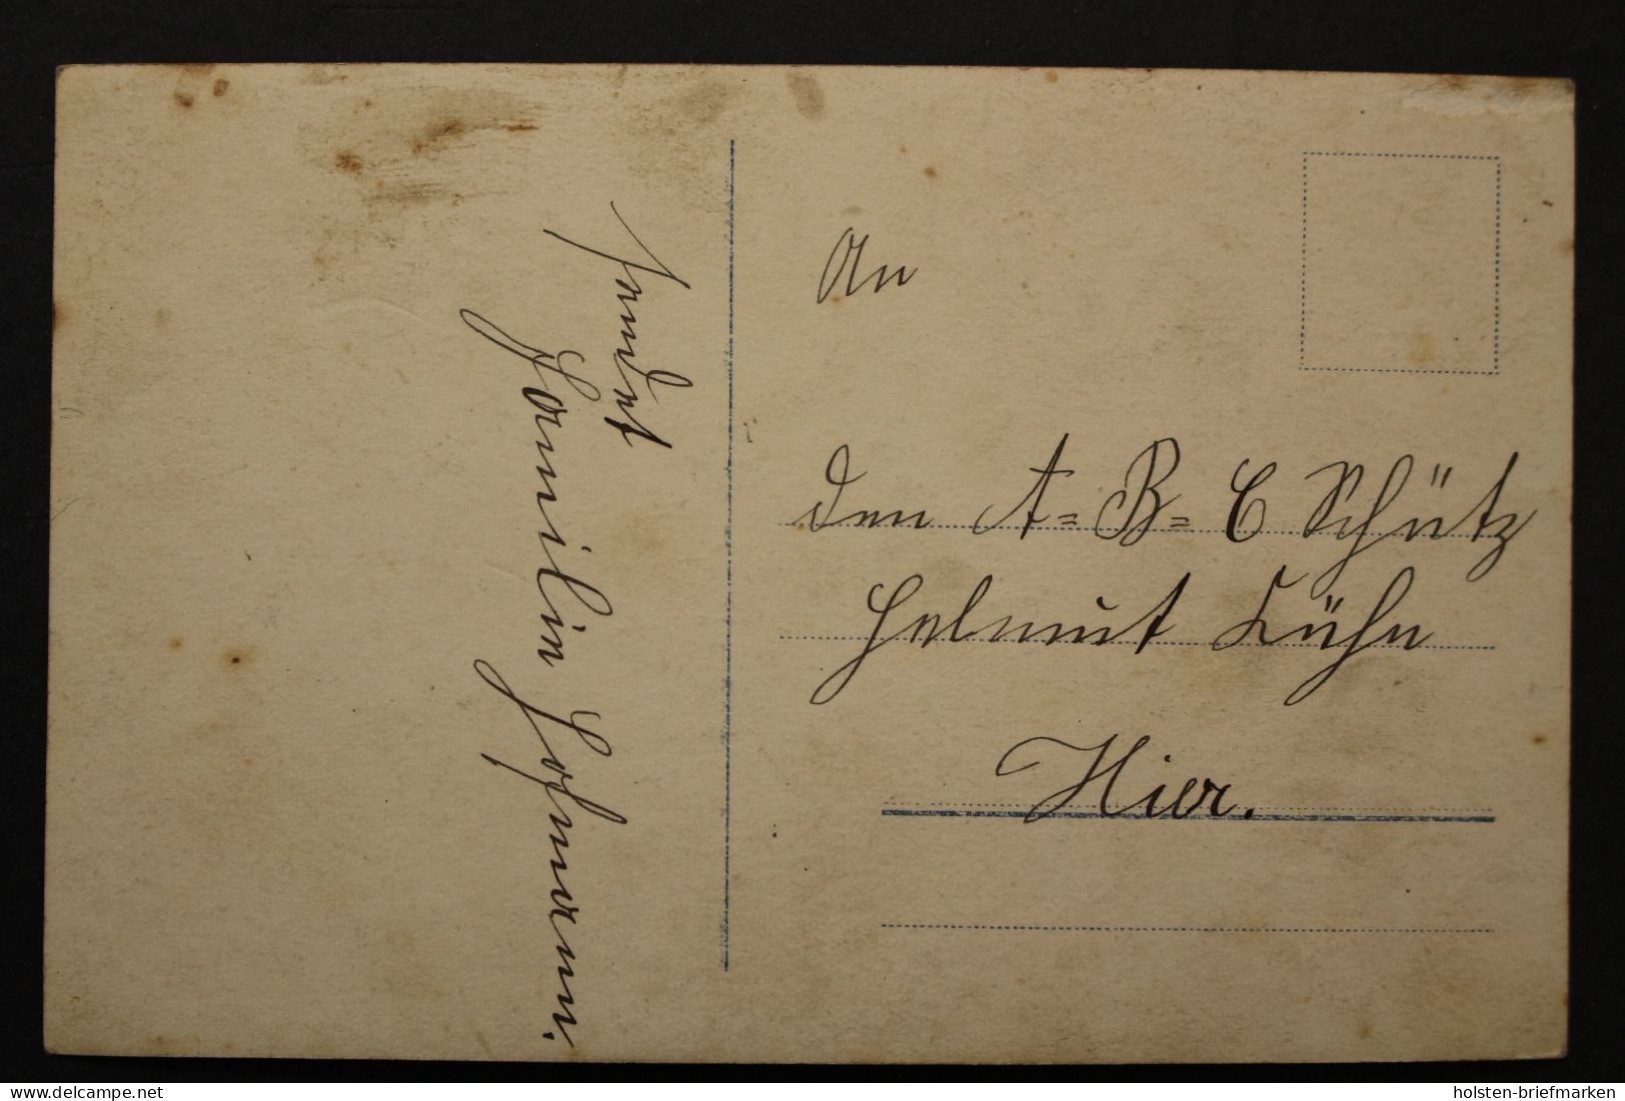 sendet
Familin Hofmann.
An
den A=B=C Schütz
Helmut Kühn
Hier.
www.delcampe.net
holsten-briefmarken